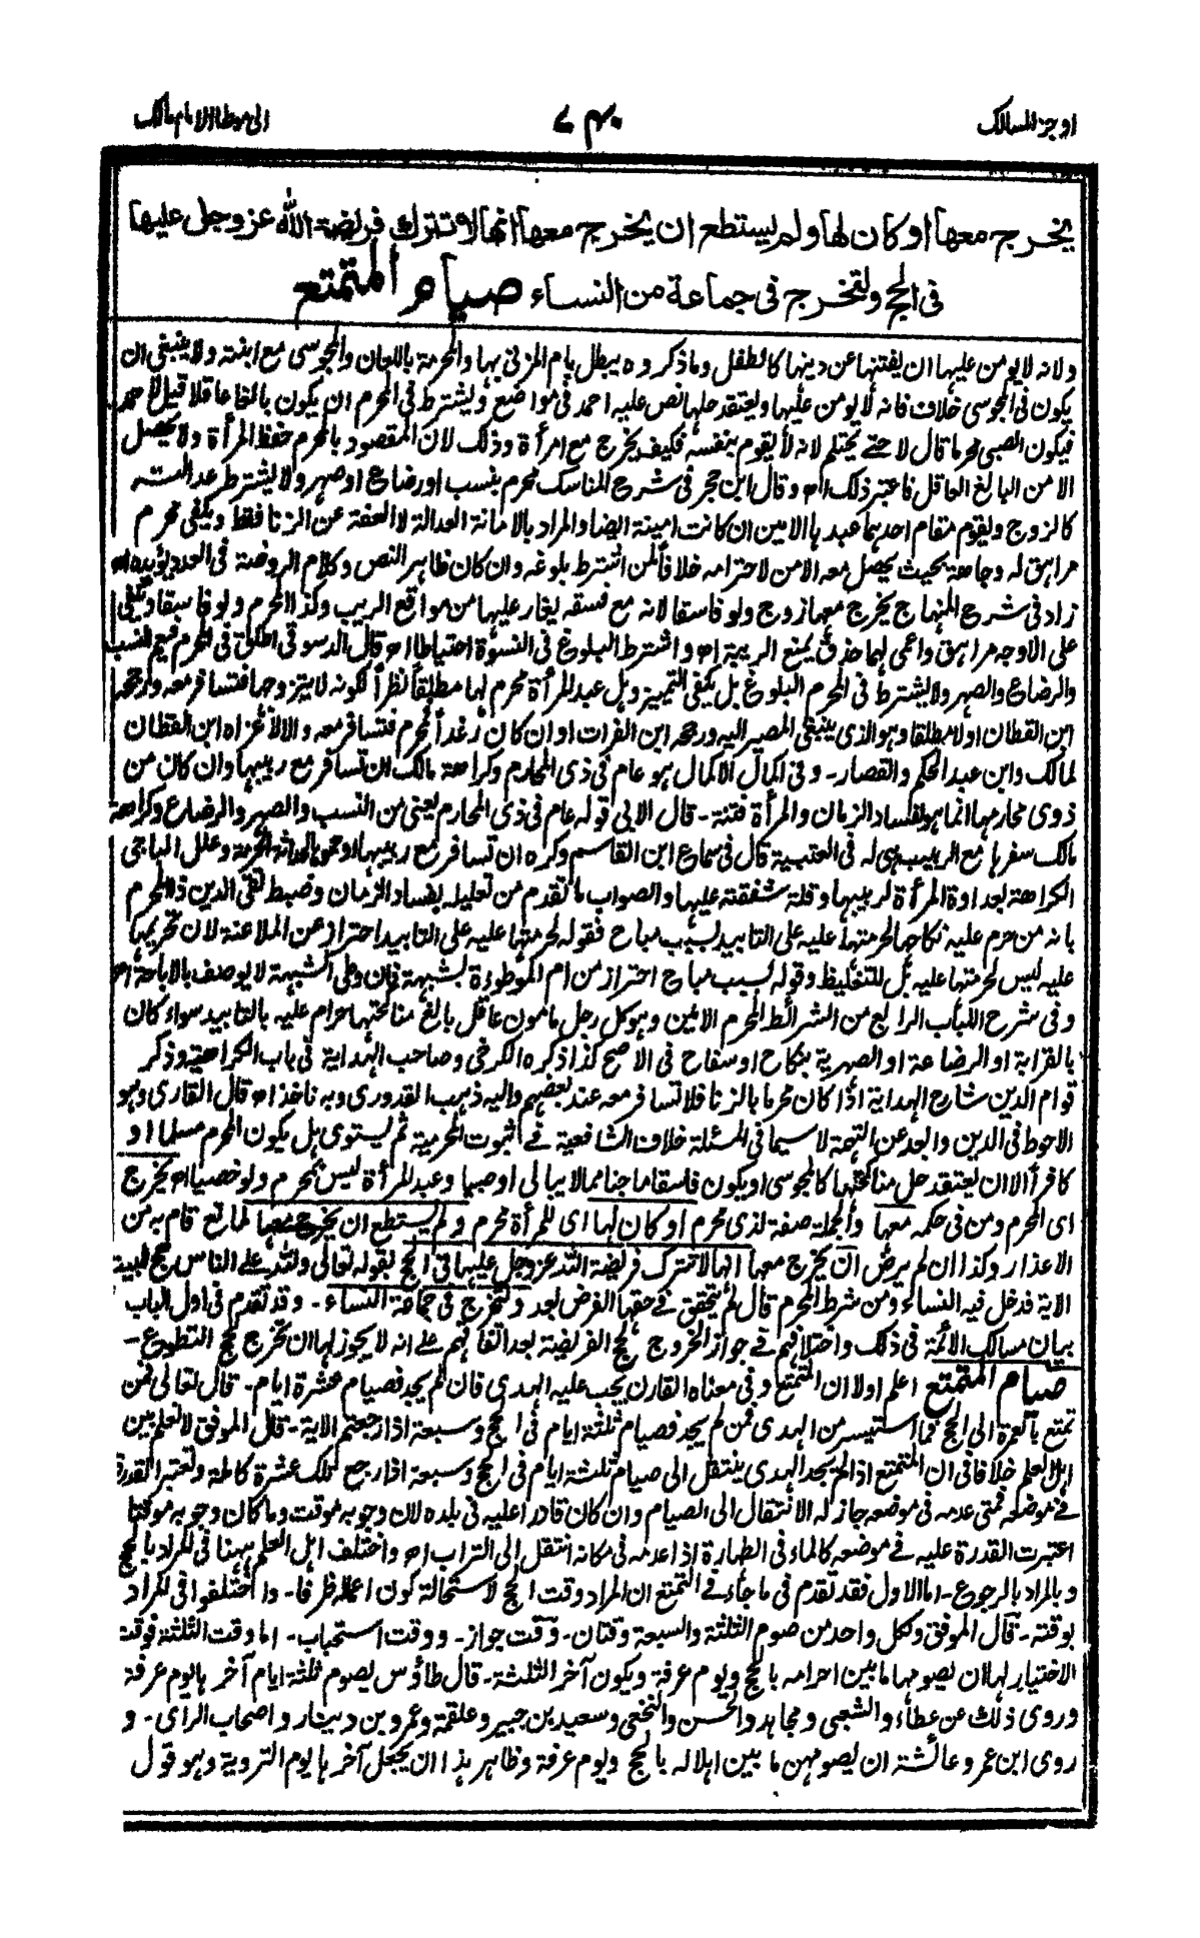 اوجز المسالك
٧٤٠
الى موطا الامام مالك
يخرج معها او كان لها ولم يستطع ان يخرج معها انها لا تترك فريضة الله عز وجل عليها
فى الحج ولتخرج فى جماعة من النساء صيام المتمتع
ولانه لا يومن عليها ان يفتنها عن دينها كالطفل وما ذكروه يبطل بام المزنى بها والمحرمة باللعان والمجوسى مع ابنته ولا ينبغى ان
يكون فى المجوسى خلاف فانه لا يومن عليها ويعتقد حلها نص عليه احمد فى مواضع ويشترط فى المحرم ان يكون بالغا عاقلا قيل لاحمد
فيكون الصبى محرما قال لا حتى يحتلم لانه لا يقوم بنفسه فكيف يخرج مع امرأة وذلك لان المقصود بالمحرم حفظ المرأة ولا يحصل
الا من البالغ العاقل فاعتبر ذلك اھ وقال ابن حجر فى شرح المناسك محرم بنسب او رضاع او صهر ولا يشترط عدالته
كالزوج ويقوم مقام احدهما عبدها الامين ان كانت امينة ايضا والمراد بالامانة العدالة لا العفة عن الزنا فقط ويكفى محرم
مراهق له وجاهة بحيث يحصل معه الامن لاحترامه خلافا لمن اشترط بلوغه وان كان ظاهر النص وكلام الروضة فى العدد يؤيده اھ
زاد فى شرح المنهاج يخرج معها زوج ولو فاسقا لانه مع فسقه يغار عليها من مواقع الريب وكذا المحرم ولو فاسقا ويكفى
على الاوجه مراهق واعمى لهما حذق يمنع الريبة اھ واشترط البلوغ فى النسوة احتياطا اھ قال الدسوقى اطلق فى المحرم فيعم النسب
والرضاع والصهر ولا يشترط فى المحرم البلوغ بل يكفى التمييز وهل عبد المرأة محرم لها مطلقا نظرا لكونه لا يتزوجها فتسافر معه ورجحه
ابن القطان او لا مطلقا وهو الذى ينبغى المصير اليه ورجحه ابن الفرات او ان كان وغدا فمحرم فتسافر معه والا لا غزاه ابن القطان
لمالك وابن عبد الحكم والقصار۔ وفى اكمال الاكمال هو عام فى ذى المحارم وكراهة مالك ان تسافر مع ربيبها وان كان من
ذوى محارمها انما هو لفساد الزمان والمرأة فتنة۔ قال الابى قوله عام فى ذى المحارم يعنى من النسب والصهر والرضاع وكراهة
مالك سفرها مع الربيب هى له فى العتبية قال فى سماع ابن القاسم وكره ان تسافر مع ربيبها وعلل الباجى
الكراهة بعداوة المرأة لربيبها وقلة شفقته عليها والصواب ما تقدم من تعليله بفساد الزمان وضبط تقى الدين ذا المحرم
بانه من حرم عليه نكاحها لحرمتها عليه على التابيد بسبب مباح فقوله لحرمتها عليه على التابيد احتراز عن الملاعنة لان تحريمها
عليه ليس لحرمتها عليه بل للتغليظ وقوله بسبب مباح احتراز من ام الموطوءة بشبهة فان وطى الشبهة لا يوصف بالاباحة اھ
وفى شرح اللباب الرابع من الشرائط المحرم الامين وهو كل رجل مامون عاقل بالغ مناكحتها حرام عليه بالتابيد سواء كان
بالقرابة او الرضاعة او الصهرية بنكاح او سفاح فى الاصح كذا ذكره الكرخى وصاحب الهداية فى باب الكراهية وذكر
قوام الدين شارح الهداية اذا كان محرما بالزنا فلا تسافر معه عند بعضهم واليه ذهب القدورى وبه ناخذ اھ قال القارى وهو
الاحوط فى الدين والابعد عن التهمة لا سيما فى المسئلة خلاف الشافعية فى ثبوت المحرمية ثم يستوى هل يكون المحرم مسلما او
كافرا الا ان يعتقد حل مناكحتها كالمجوسى او يكون فاسقا ماجنا مما لا يبالى او صبيا وعبد المرأة ليس بمحرم ولو خصيا اھ يخرج
اى المحرم ومن فى حكمه معها والجملة صفة لذى محرم او كان لها اى للمرأة محرم ولم يستطع ان يخرج معها لمانع قام به من
الاعذار وكذا ان لم يرض ان يخرج معها انها لا تترك فريضة الله عز وجل عليها فى الحج لقوله تعالى ولله على الناس حج البيت
الاية فدخل فيه النساء ومن شرط المحرم قال لم يتحقق فى حقها الفرض بعد ولتخرج فى جماعة النساء۔ وقد تقدم فى اول الباب
بيان مسالك الائمة فى ذلك واختلافهم فى جواز الخروج لحج الفريضة بعد اتفاقهم على انه لا يجوز لها ان تخرج لحج التطوع۔
صيام المتمتع اعلم اولا ان المتمتع وفى معناه القارن يجب عليه الهدى فان لم يجد فصيام عشرة ايام۔ قال تعالى فمن
تمتع بالعمرة الى الحج فما استيسر من الهدى فمن لم يجد فصيام ثلثة ايام فى الحج وسبعة اذا رجعتم الاية۔ قال الموفق لا نعلم بين
اهل العلم خلافا فى ان المتمتع اذا لم يجد الهدى ينتقل الى صيام ثلثة ايام فى الحج وسبعة اذا رجع تلك عشرة كاملة وتعتبر القدرة
فى موضعه فمتى عدمه فى موضعه جاز له الانتقال الى الصيام وان كان قادرا عليه فى بلده لان وجوبه موقت وما كان وجوبه موقتا
اعتبرت القدرة عليه فى موضعه كالماء فى الطهارة اذا عدمه فى مكانه انتقل الى التراب اھ واختلف اهل العلم ههنا فى المراد بالحج
وبالمراد بالرجوع۔ اما الاول فقد تقدم فى ما جاء فى التمتع ان المراد وقت الحج لاستحالة كون اعماله ظرفا۔ واختلفوا فى المراد
بوقته۔ قال الموفق ولكل واحد من صوم الثلثة والسبعة وقتان۔ وقت جواز۔ ووقت استحباب۔ اما وقت الثلثة فوقت
الاختيار لها ان يصومها ما بين احرامه بالحج ويوم عرفة ويكون آخر الثلثة۔ قال طاؤس يصوم ثلثة ايام آخرها يوم عرفة
وروى ذلك عن عطاء والشعبى ومجاهد والحسن والنخعى وسعيد بن جبير وعلقمة وعمرو بن دينار واصحاب الراى۔ و
روى ابن عمر وعائشة ان يصومهن ما بين اهلاله بالحج ويوم عرفة وظاهر هذا ان يجعل آخرها يوم التروية وهو قول